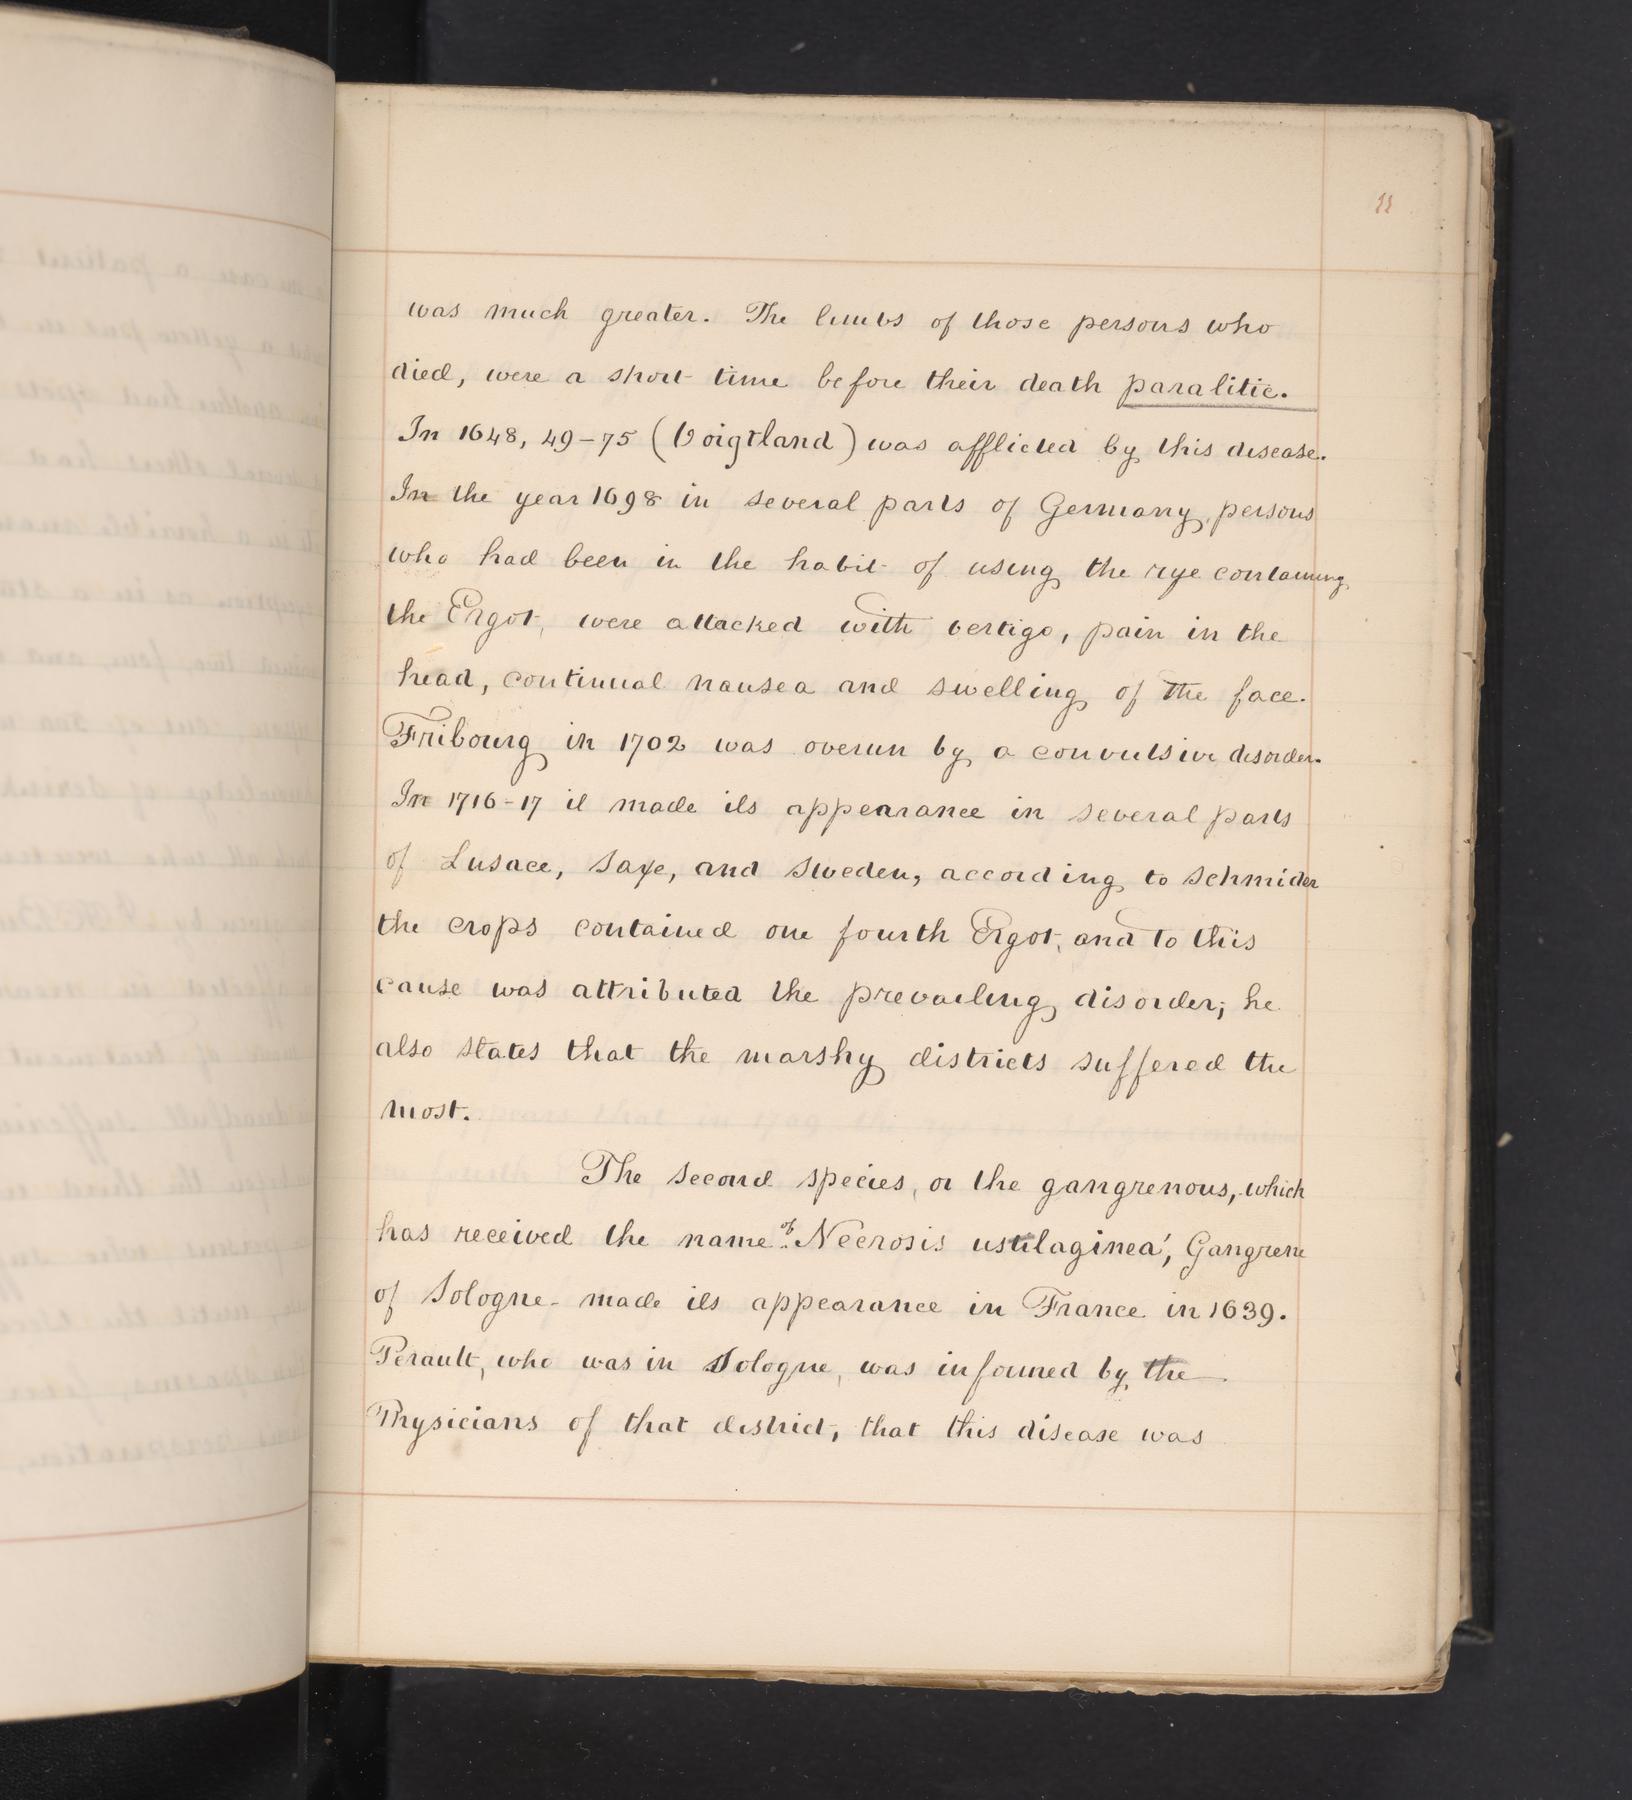 11
was much greater. The limbs of those persons who
died, were a short time before their death paralitic.
In 1648, 49-75 (Voigtland) was afflicted by this disease.
In the year 1698 in several parts of Germany, persons
who had been in the habit of using the rye containing
the Ergot, were attacked with vertigo, pain in the
head, continual nausea and swelling of the face.
Fribourg in 1702 was overun by a convulsive disorder.
In 1716-17 it made its appearance in several parts
of Lusace, Saxe, and Sweden, according to Schmider
the crops contained one fourth Ergot, and to this
cause was attributed the prevailing disorder; he
also states that the marshy districts suffered the
most.
The second species, or the gangrenous, which
has received the name of Necrosis ustilaginea', Gangrene
of Sologne - made its appearance in France in 1639.
Perault, who was in Sologne, was informed by the
Physicians of that district, that this disease was